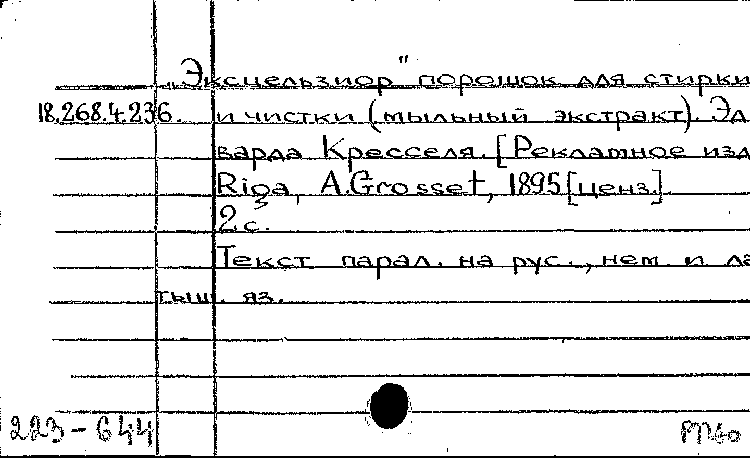 „Эксцельзиор" порошок для стирки
18.268.4.236. и чистки (мыльный экстракт). Эд
варда Кресселя. [Рекламное изд
Riga, A. Grosset, 1895 [ценз.]
2 с.
Текст парал. на рус., нем. и ла
тыш. яз.
223-644